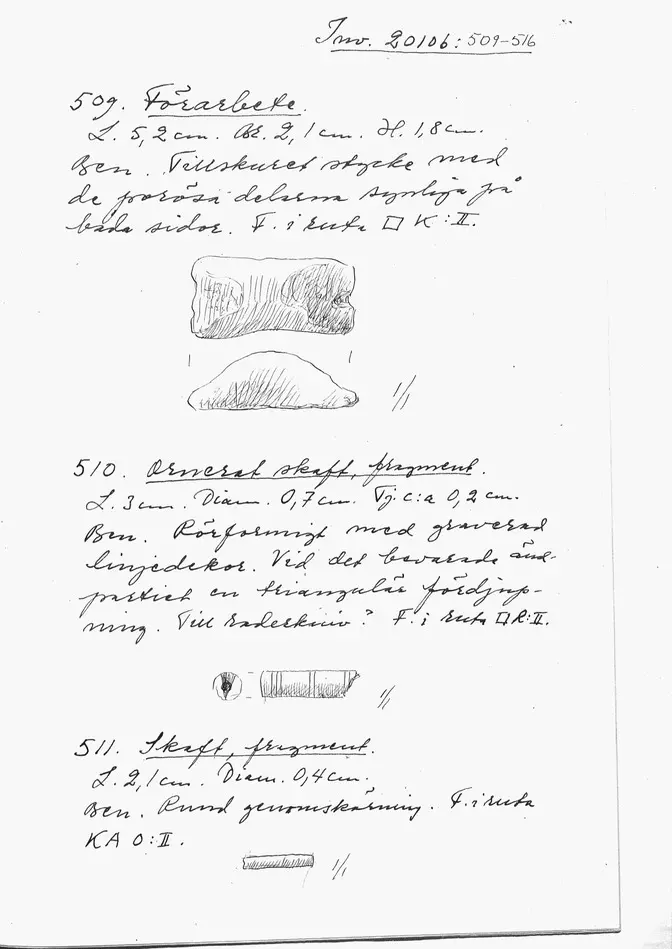 Inv. 20106:509-516
509. Förarbete.
L. 5,2 cm. Br. 2,1 cm. H. 1,8 cm.
Ben. Tillskuret stycke med
de porösa delarna synliga på
båda sidor. F. i ruta □ K:II.
1/1
510. Ornerat skaft, fragment.
L. 3 cm. Diam. 0,7 cm. Tj. c:a 0,2 cm.
Ben. Rörformigt med graverad
linjedekor. Vid det bevarade änd-
partiet en triangulär fördjup-
ning. Till raderkniv? F. i ruta □ R:II.
1/1
511. Skaft, fragment.
L. 2,1 cm. Diam. 0,4 cm.
Ben. Rund genomskärning. F. i ruta
KA O:II.
1/1